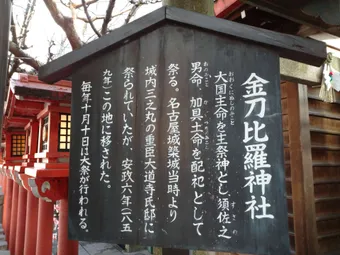 金刀比羅神社
大国主命を主祭神とし、須佐之
おおくにぬしのみこと
すさの
男命、加具主命を配祀として
祭る。名古屋城築城当時より
城内三之丸の重臣大道寺氏邸に
祭られていたが、安政六年(一八五
九年)この地に移された。
毎年十月十日は大祭が行われる。